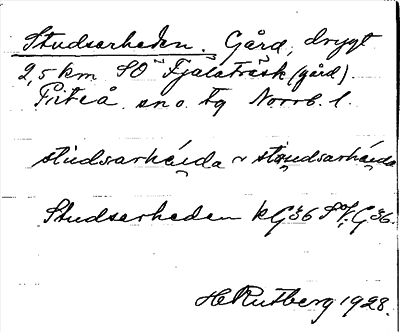 Studserheden. Gård, drygt
2,5 km SO Fjälaträsk (gård).
Piteå sn o. tg Norrb. l.
studsarhéida ~ stsudsarhéida
Studserheden kG36 SVG36.
H Rutberg 1928.